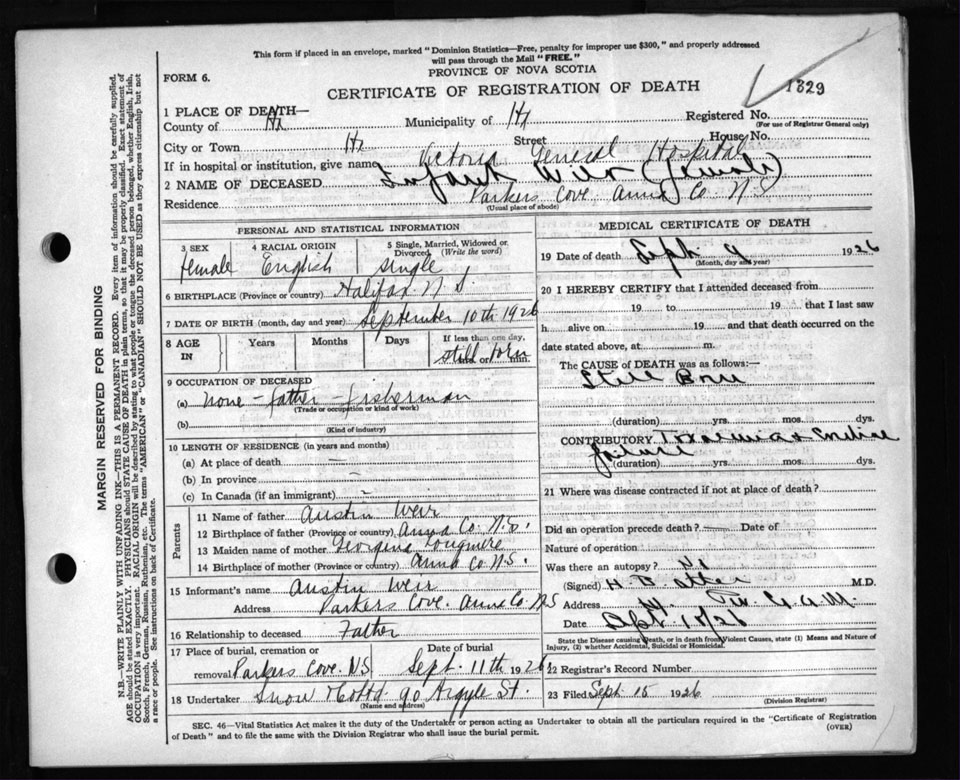 This form if placed in an envelope, marked "Dominion Statistics—Free, penalty for improper use $300," and properly addressed
will pass through the Mail "FREE."
PROVINCE OF NOVA SCOTIA
FORM 6.
CERTIFICATE OF REGISTRATION OF DEATH
1329
1 PLACE OF DEATH—
Registered No.
(For use of Registrar General only)
County of Hx Municipality of Hx
City or Town Hx Street House No.
If in hospital or institution, give name Victoria General Hospital
2 NAME OF DECEASED Infant Weir (female)
Residence Parkers Cove Anna Co N S
(Usual place of abode)
PERSONAL AND STATISTICAL INFORMATION
3 SEX 4 RACIAL ORIGIN 5 Single, Married, Widowed or Divorced (Write the word)
female English single
6 BIRTHPLACE (Province or country) Halifax N S.
7 DATE OF BIRTH (month, day and year) September 10th 1926
8 AGE IN Years Months Days If less than one day, hrs. or min.
still born
9 OCCUPATION OF DECEASED
(a) none - father - fisherman
(Trade or occupation or kind of work)
(b)
(Kind of industry)
10 LENGTH OF RESIDENCE (in years and months)
(a) At place of death —
(b) In province —
(c) In Canada (if an immigrant) -
Parents
11 Name of father Austin Weir
12 Birthplace of father (Province or country) Anna Co. N.S.
13 Maiden name of mother Georgina Longmire
14 Birthplace of mother (Province or country) Anna Co N.S.
15 Informant's name Austin Weir
Address Parkers Cove. Anna Co. N S
16 Relationship to deceased Father
17 Place of burial, cremation or removal Parkers Cove. N.S Date of burial Sept. 11th 1926
18 Undertaker Snow & Co Ltd 90 Argyle St.
(Name and address)
MEDICAL CERTIFICATE OF DEATH
19 Date of death Sept. 9 1926
(Month, day and year)
20 I HEREBY CERTIFY that I attended deceased from
19 to 19 that I last saw
h alive on 19 and that death occurred on
date stated above, at m.
The CAUSE OF DEATH was as follows:—
Still Born
(duration) yrs. mos. dys.
CONTRIBUTORY Toxaemia & Cardiac
failure
(duration) yrs. mos. dys.
21 Where was disease contracted if not at place of death?
Did an operation precede death? Date of
Nature of operation
Was there an autopsy?
(Signed) H. B. M.D.
Address
Date Sept. 10/26
State the Disease causing Death, or in death from Violent Causes, state (1) Means and Nature of
Injury, (2) whether Accidental, Suicidal or Homicidal.
22 Registrar's Record Number
23 Filed Sept 15 1926
(Division Registrar)
SEC. 46—Vital Statistics Act makes it the duty of the Undertaker or person acting as Undertaker to obtain all the particulars required in the "Certificate of Registration
of Death" and to file the same with the Division Registrar who shall issue the burial permit.
(OVER)
MARGIN RESERVED FOR BINDING
N.B.—WRITE PLAINLY WITH UNFADING INK—THIS IS A PERMANENT RECORD. Every item of information should be carefully supplied.
AGE should be stated EXACTLY. PHYSICIANS should STATE CAUSE OF DEATH in plain terms, so that it may be properly classified. Exact statement of
OCCUPATION is very important. RACIAL ORIGIN will be described by stating to what people or tongue the deceased person belonged, whether English, Irish,
Scotch, French, German, Russian, Ruthenian, etc. The terms "AMERICAN" or "CANADIAN" SHOULD NOT BE USED as they express citizenship but not
a race or people. See instructions on back of Certificate.